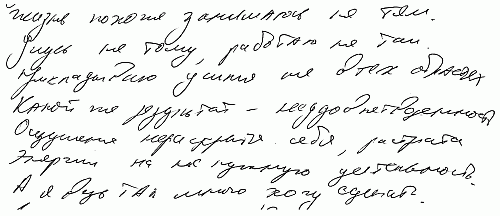 Жизнь похоже занимаюсь не тем.
Учусь не тому, работаю не там.
Прикладываю усилия не в тех областях
Какой же результат - неудовлетворенность
Ощущение нераскрытия себя, растрата
энергии на не нужную деятельность.
А я ведь так много хочу сделать.